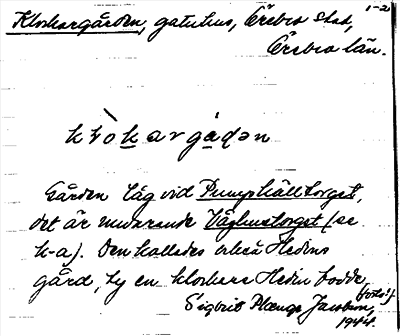 1-2
Klockargården, gatuhus, Örebro stad,
Örebro län.
Gården låg vid Pumphälltorget,
det är nuvarande Våghustorget (se
k-a). Den kallades också Hedins
gård, ty en klockare Hedin bodde
(forts!)
Sigbrit Plænge Jacobson,
1944.